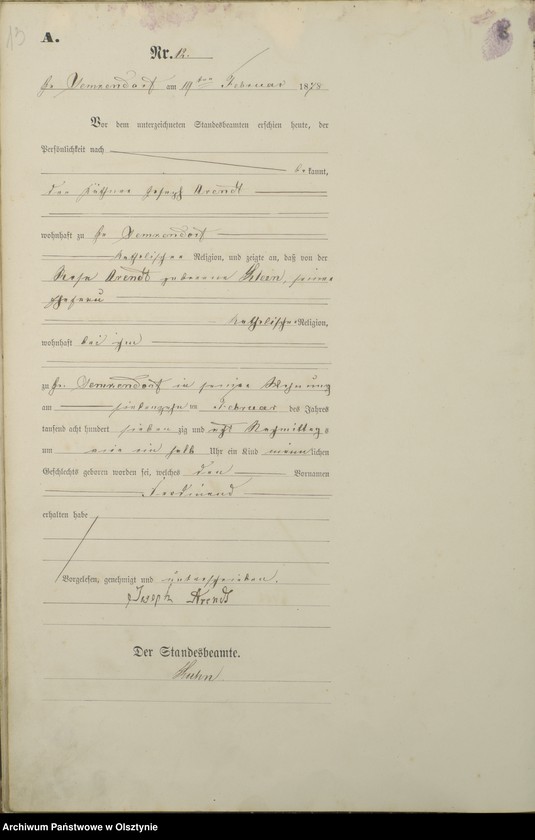 13
A.
Nr. 12.
Gr. Lemkendorf am 19ten Februar 1878
Vor dem unterzeichneten Standesbeamten erschien heute, der
Persönlichkeit nach
bekannt,
der Käthner Joseph Arendt
wohnhaft zu Gr. Lemkendorf
katholischer Religion, und zeigte an, daß von der
Rosa Arendt geborene Klein, seiner
Ehefrau
katholischer Religion,
wohnhaft bei ihm
zu Gr. Lemkendorf in seiner Wohnung
am siebenzehn ten Februar des Jahres
tausend acht hundert sieben zig und acht Nachmittags
um ein halb Uhr ein Kind männlichen
Geschlechts geboren worden sei, welches den Vornamen
Ferdinand
erhalten habe
Vorgelesen, genehmigt und unterschrieben.
Joseph Arendt
Der Standesbeamte.
Kuhn
Archiwum Państwowe w Olsztynie